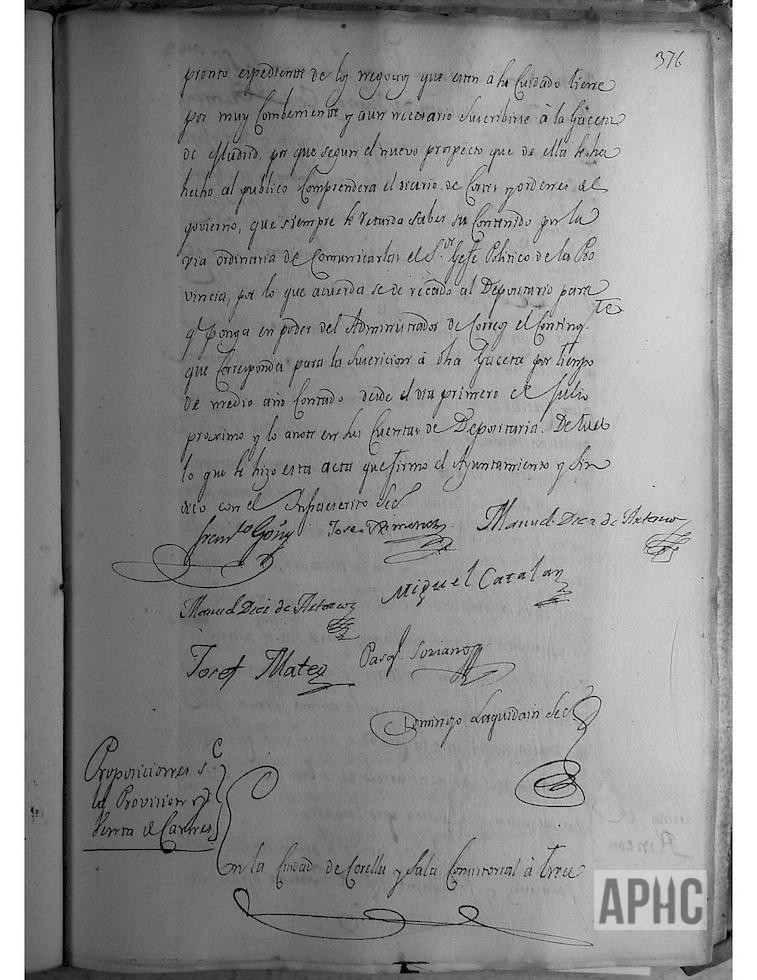 376
pronto expediente de los negocios que estan à su Cuidado tiene
por muy Combeniente y aun necesario Suscribirse à la Gaceta
de Madrid, por que segun el nuevo prospecto que de ella se ha
hecho al publico Comprendera el diario de Cortes y ordenes del
govierno, que siempre se retarda saber su Contenido por la
via ordinaria de Comunicarlas el S.or Gefe Politico de la Pro
vincia, por lo que acuerda se de recado al Depositario para
q.e ponga en poder del Administrador de Correos el Conting.te
que Corresponda para la Suscricion à dha Gaceta por tiempo
de medio año Contado desde el dia primero de Julio
proximo y lo anote en sus Cuentas de Depositaria. De todo
lo que se hizo esta acta que firmo el Ayuntamiento y Sin
dico con el Infraescrito Sec.
Fran.co Goñy Josef Ximenez Manuel Diez de
Manuel Diez de Miguel Catalan
Josef Mateo Pasq.l Soriano
Domingo Laquidain Sec.
Proposiciones s.
la Provision y
Venta de Carnes
En la Ciudad de Corella y Sala Consistorial à trece
APHC